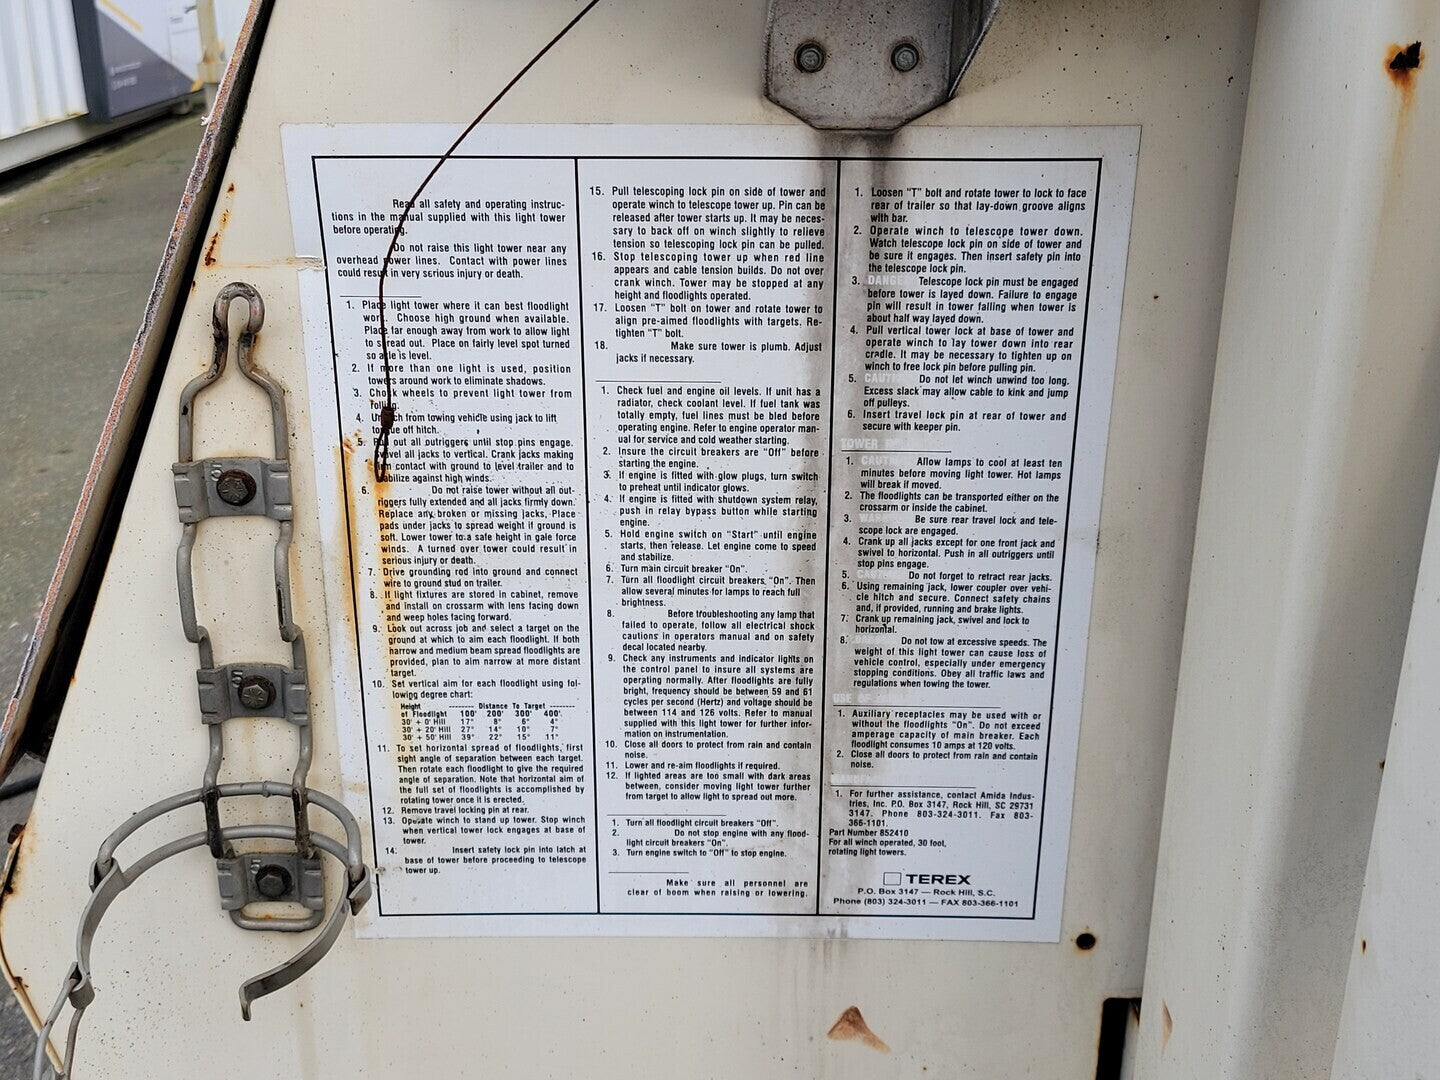 Read all safety and operating instruc-
tions in the manual supplied with this light tower
before operating.
Do not raise this light tower near any
overhead power lines. Contact with power lines
could result in very serious injury or death.
1. Place light tower where it can best floodlight
work. Choose high ground when available.
Place far enough away from work to allow light
to spread out. Place on fairly level spot turned
so axle is level.
2. If more than one light is used, position
towers around work to eliminate shadows.
3. Chock wheels to prevent light tower from
rolling.
4. Unhitch from towing vehicle using jack to lift
tongue off hitch.
5. Pull out all outriggers until stop pins engage.
Swivel all jacks to vertical. Crank jacks making
firm contact with ground to level trailer and to
stabilize against high winds.
6. Do not raise tower without all out-
riggers fully extended and all jacks firmly down.
Replace any broken or missing jacks, Place
pads under jacks to spread weight if ground is
soft. Lower to a safe height in gale force
winds. A turned over tower could result in
serious injury or death.
7. Drive grounding rod into ground and connect
wire to ground stud on trailer.
8. If light fixtures are stored in cabinet, remove
and install on crossarm with lens facing down
and weep holes facing forward.
9. Look out across job and select a target on the
ground at which to aim each floodlight. If both
narrow and medium beam spread floodlights are
provided, plan to aim narrow at more distant
target.
10. Set vertical aim for each floodlight using fol-
lowing degree chart:
Height -------- Distance To Target --------
of Floodlight 100' 200' 300' 400'
30' + 0' Hill 17° 8° 6° 4°
30' + 20' Hill 27° 14° 10° 7°
30' + 50' Hill 39° 22° 15° 11°
11. To set horizontal spread of floodlights, first
sight angle of separation between each target.
Then rotate each floodlight to give the required
angle of separation. Note that horizontal aim of
the full set of floodlights is accomplished by
rotating tower once it is erected.
12. Remove travel locking pin at rear.
13. Operate winch to stand up tower. Stop winch
when vertical tower lock engages at base of
tower.
14. Insert safety lock pin into latch at
base of tower before proceeding to telescope
tower up.
15. Pull telescoping lock pin on side of tower and
operate winch to telescope tower up. Pin can be
released after tower starts up. It may be neces-
sary to back off on winch slightly to relieve
tension so telescoping lock pin can be pulled.
16. Stop telescoping tower up when red line
appears and cable tension builds. Do not over
crank winch. Tower may be stopped at any
height and floodlights operated.
17. Loosen "T" bolt on tower and rotate tower to
align pre-aimed floodlights with targets. Re-
tighten "T" bolt.
18. Make sure tower is plumb. Adjust
jacks if necessary.
1. Check fuel and engine oil levels. If unit has a
radiator, check coolant level. If fuel tank was
totally empty, fuel lines must be bled before
operating engine. Refer to engine operator man-
ual for service and cold weather starting.
2. Insure the circuit breakers are "Off" before
starting the engine.
3. If engine is fitted with glow plugs, turn switch
to preheat until indicator glows.
4. If engine is fitted with shutdown system relay,
push in relay bypass button while starting
engine.
5. Hold engine switch on "Start" until engine
starts, then release. Let engine come to speed
and stabilize.
6. Turn main circuit breaker "On".
7. Turn all floodlight circuit breakers, "On". Then
allow several minutes for lamps to reach full
brightness.
8. Before troubleshooting any lamp that
failed to operate, follow all electrical shock
cautions in operators manual and on safety
decal located nearby.
9. Check any instruments and indicator lights on
the control panel to insure all systems are
operating normally. After floodlights are fully
bright, frequency should be between 59 and 61
cycles per second (Hertz) and voltage should be
between 114 and 126 volts. Refer to manual
supplied with this light tower for further infor-
mation on instrumentation.
10. Close all doors to protect from rain and contain
noise.
11. Lower and re-aim floodlights if required.
12. If lighted areas are too small with dark areas
between, consider moving light tower further
from target to allow light to spread out more.
1. Turn all floodlight circuit breakers "Off".
2. Do not stop engine with any flood-
light circuit breakers "On".
3. Turn engine switch to "Off" to stop engine.
Make sure all personnel are
clear of boom when raising or lowering.
1. Loosen "T" bolt and rotate tower to lock to face
rear of trailer so that lay-down groove aligns
with bar.
2. Operate winch to telescope tower down.
Watch telescope lock pin on side of tower and
be sure it engages. Then insert safety pin into
the telescope lock pin.
3. DANGER Telescope lock pin must be engaged
before tower is layed down. Failure to engage
pin will result in tower falling when tower is
about half way layed down.
4. Pull vertical tower lock at base of tower and
operate winch to lay tower down into rear
cradle. It may be necessary to tighten up on
winch to free lock pin before pulling pin.
5. CAUTION Do not let winch unwind too long.
Excess slack may allow cable to kink and jump
off pulleys.
6. Insert travel lock pin at rear of tower and
secure with keeper pin.
TOWER
1. CAUTION Allow lamps to cool at least ten
minutes before moving light tower. Hot lamps
will break if moved.
2. The floodlights can be transported either on the
crossarm or inside the cabinet.
3. Be sure rear travel lock and tele-
scope lock are engaged.
4. Crank up all jacks except for one front jack and
swivel to horizontal. Push in all outriggers until
stop pins engage.
5. Do not forget to retract rear jacks.
6. Using remaining jack, lower coupler over vehi-
cle hitch and secure. Connect safety chains
and, if provided, running and brake lights.
7. Crank up remaining jack, swivel and lock to
horizontal.
8. Do not tow at excessive speeds. The
weight of this light tower can cause loss of
vehicle control, especially under emergency
stopping conditions. Obey all traffic laws and
regulations when towing the tower.
USE OF
1. Auxiliary receptacles may be used with or
without the floodlights "On". Do not exceed
amperage capacity of main breaker. Each
floodlight consumes 10 amps at 120 volts.
2. Close all doors to protect from rain and contain
noise.
1. For further assistance, contact Amida Indus-
tries, Inc. P.O. Box 3147, Rock Hill, SC 29731
3147. Phone 803-324-3011. Fax 803-
366-1101.
Part Number 852410
For all winch operated, 30 foot,
rotating light towers.
TEREX
P.O. Box 3147 — Rock Hill, S.C.
Phone (803) 324-3011 — FAX 803-366-1101
5
5
5